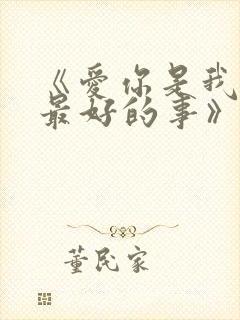 《爱你是我
最好的事》
董民家